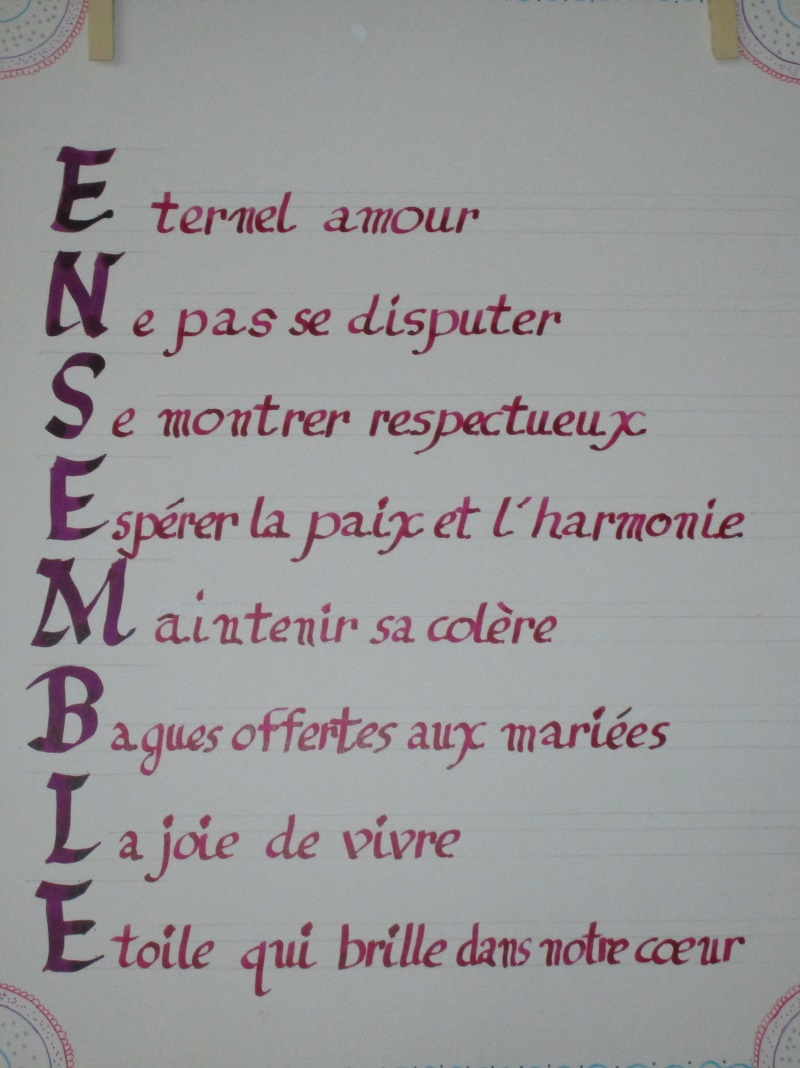 Eternel amour
Ne pas se disputer
Se montrer respectueux
Espérer la paix et l'harmonie
Maintenir sa colère
Bagues offertes aux mariées
La joie de vivre
Etoile qui brille dans notre cœur